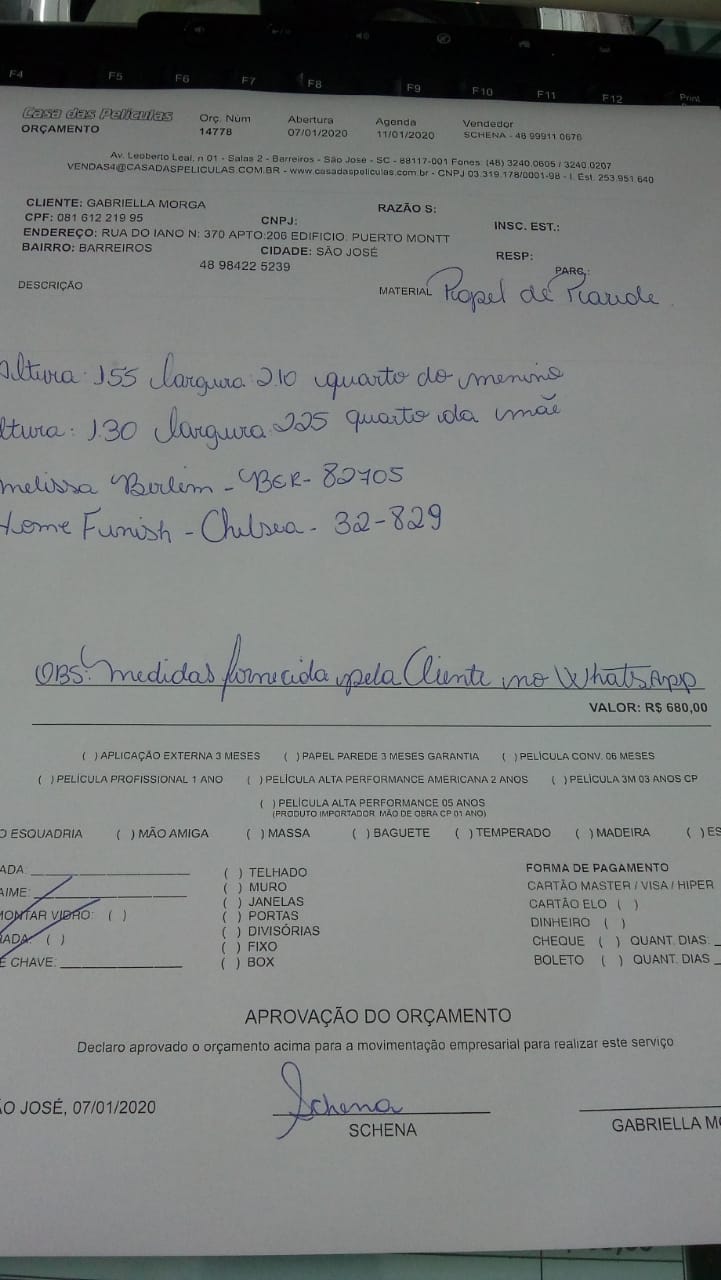 F4 F5 F6 F7 F8 F9 F10 F11 F12 Print
Casa das Películas
ORÇAMENTO
Orç. Num
14778
Abertura
07/01/2020
Agenda
11/01/2020
Vendedor
SCHENA - 48 99911 0676
Av. Leoberto Leal, n 01 - Salas 2 - Barreiros - São Jose - SC - 88117-001 Fones (48) 3240.0605 / 3240.0207
VENDAS4@CASADASPELICULAS.COM.BR - www.casadaspeliculas.com.br - CNPJ 03.319.178/0001-98 - I. Est. 253.951.640
CLIENTE: GABRIELLA MORGA
RAZÃO S:
CPF: 081 612 219 95
CNPJ:
INSC. EST.:
ENDEREÇO: RUA DO IANO N: 370 APTO:206 EDIFICIO: PUERTO MONTT
BAIRRO: BARREIROS
CIDADE: SÃO JOSÉ
RESP:
48 98422 5239
PARC.:
DESCRIÇÃO
MATERIAL Papel de Parede
Altura: 155 largura 210 quarto do menino
ltura: 130 largura 225 quarto da mãe
melissa Berlim - BER - 82705
Home Funish - Chelsea - 32-829
OBS: medidas fornecida pela Cliente no WhatsApp
VALOR: R$ 680,00
( ) APLICAÇÃO EXTERNA 3 MESES ( ) PAPEL PAREDE 3 MESES GARANTIA ( ) PELÍCULA CONV. 06 MESES
( ) PELÍCULA PROFISSIONAL 1 ANO ( ) PELÍCULA ALTA PERFORMANCE AMERICANA 2 ANOS ( ) PELÍCULA 3M 03 ANOS CP
( ) PELÍCULA ALTA PERFORMANCE 05 ANOS
(PRODUTO IMPORTADOR MÃO DE OBRA CP 01 ANO)
O ESQUADRIA ( ) MÃO AMIGA ( ) MASSA ( ) BAGUETE ( ) TEMPERADO ( ) MADEIRA ( ) ES
ADA:
AIME:
MONTAR VIDRO: ( )
RADA: ( )
E CHAVE:
( ) TELHADO
( ) MURO
( ) JANELAS
( ) PORTAS
( ) DIVISÓRIAS
( ) FIXO
( ) BOX
FORMA DE PAGAMENTO
CARTÃO MASTER / VISA / HIPER
CARTÃO ELO ( )
DINHEIRO ( )
CHEQUE ( ) QUANT. DIAS:
BOLETO ( ) QUANT. DIAS
APROVAÇÃO DO ORÇAMENTO
Declaro aprovado o orçamento acima para a movimentação empresarial para realizar este serviço
ÃO JOSÉ, 07/01/2020
Schena
SCHENA
GABRIELLA MO